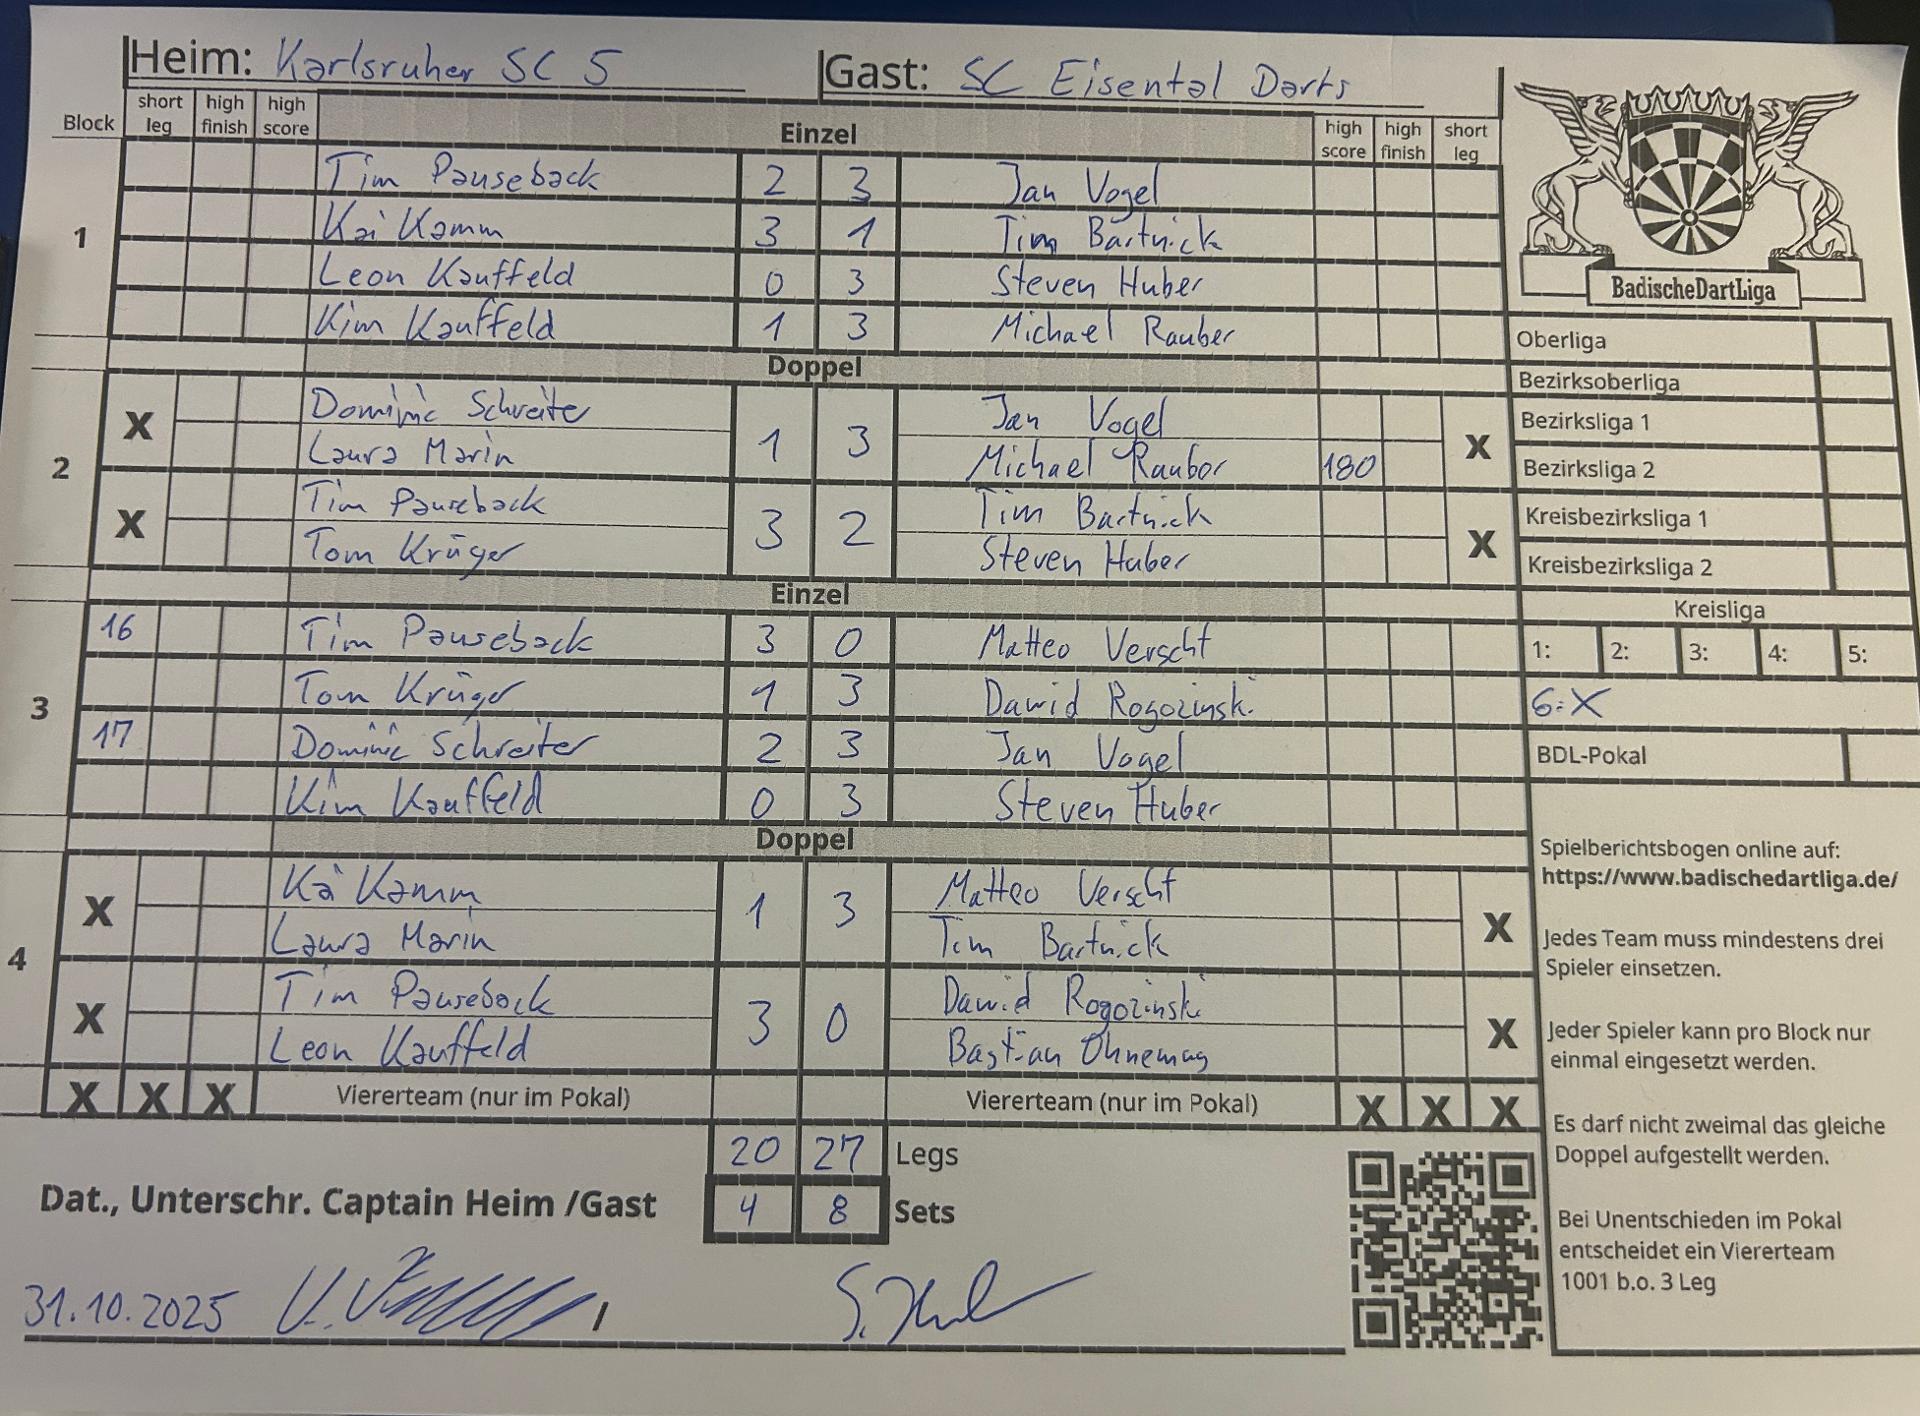 Heim: Karlsruher SC 5 Gast: SC Eisental Darts
Block short leg high finish high score Einzel high score high finish short leg
1
Tim Pauseback 2 3 Jan Vogel
Kai Kamm 3 1 Tim Bartnick
Leon Kauffeld 0 3 Steven Huber
Kim Kauffeld 1 3 Michael Rauber
Doppel
2
X Dominic Schreiter 1 3 Jan Vogel X
Laura Marin Michael Rauber 180
X Tim Pauseback 3 2 Tim Bartnick X
Tom Krüger Steven Huber
Einzel
3
16 Tim Pauseback 3 0 Matteo Verscht
Tom Krüger 1 3 Dawid Rogozinski
17 Dominic Schreiter 2 3 Jan Vogel
Kim Kauffeld 0 3 Steven Huber
Doppel
4
X Kai Kamm 1 3 Matteo Verscht X
Laura Marin Tim Bartnick
X Tim Pauseback 3 0 Dawid Rogozinski X
Leon Kauffeld Bastian Ohnemus
X X X Viererteam (nur im Pokal) Viererteam (nur im Pokal) X X X
20 27 Legs
Dat., Unterschr. Captain Heim /Gast 4 8 Sets
31.10.2025
BadischeDartLiga
Oberliga
Bezirksoberliga
Bezirksliga 1
Bezirksliga 2
Kreisbezirksliga 1
Kreisbezirksliga 2
Kreisliga
1: 2: 3: 4: 5:
6: X
BDL-Pokal
Spielberichtsbogen online auf:
https://www.badischedartliga.de/
Jedes Team muss mindestens drei
Spieler einsetzen.
Jeder Spieler kann pro Block nur
einmal eingesetzt werden.
Es darf nicht zweimal das gleiche
Doppel aufgestellt werden.
Bei Unentschieden im Pokal
entscheidet ein Viererteam
1001 b.o. 3 Leg